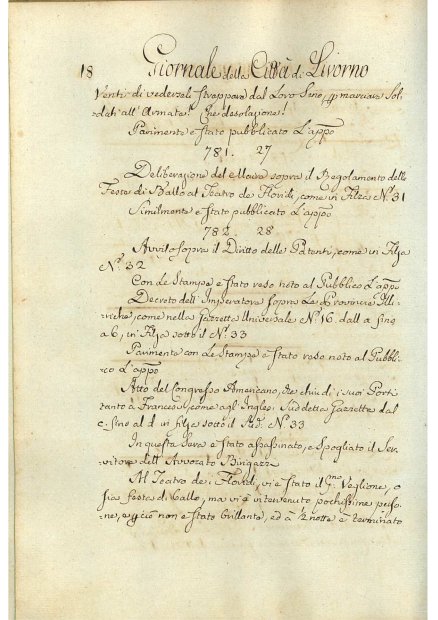 18 Giornale della Città di Livorno
Venti di vederseli strappare dal Loro Seno, p. marciare Sol-
dati all'Armata! Che desolazione!
Parimente è stato pubblicato L'appo
781. 27
Deliberazione del Maire sopra il Regolamento delle
Feste di Ballo al Teatro de Floridi, come in Filza N.º 31
Similmente è stato pubblicato L'appo
782. 28
Avviso sopra il Diritto delle Patenti, come in Filza
N.º 32
Con Le Stampe è stato reso noto al Pubblico L'appo
Decreto dell'Imperatore sopra Le Provincie Illi-
riche, come nella Gazzetta Universale N.º 16. dall a sino
a b, in Filza sotto il N.º 33
Parimente con Le Stampe è stato reso noto al Pubbli-
co L'appo
Atto del Congresso Americano, che chiude i suoi Porti
tanto a Francesi, come agl'Inglesi Suddetta Gazzetta dal
c. sino al d in filza sotto il Nº. 33
In questa Sera è stato assassinato, e Spogliato il Ser-
vitore dell'Avvocato Bingazzi
Al Teatro dei Floridi, vi è stato il Pmo Veglione, o
sia festa di ballo, ma vi è intervenuto pochissime perso-
ne, e p. ciò non è stato brillante, ed a ½ notte è terminato